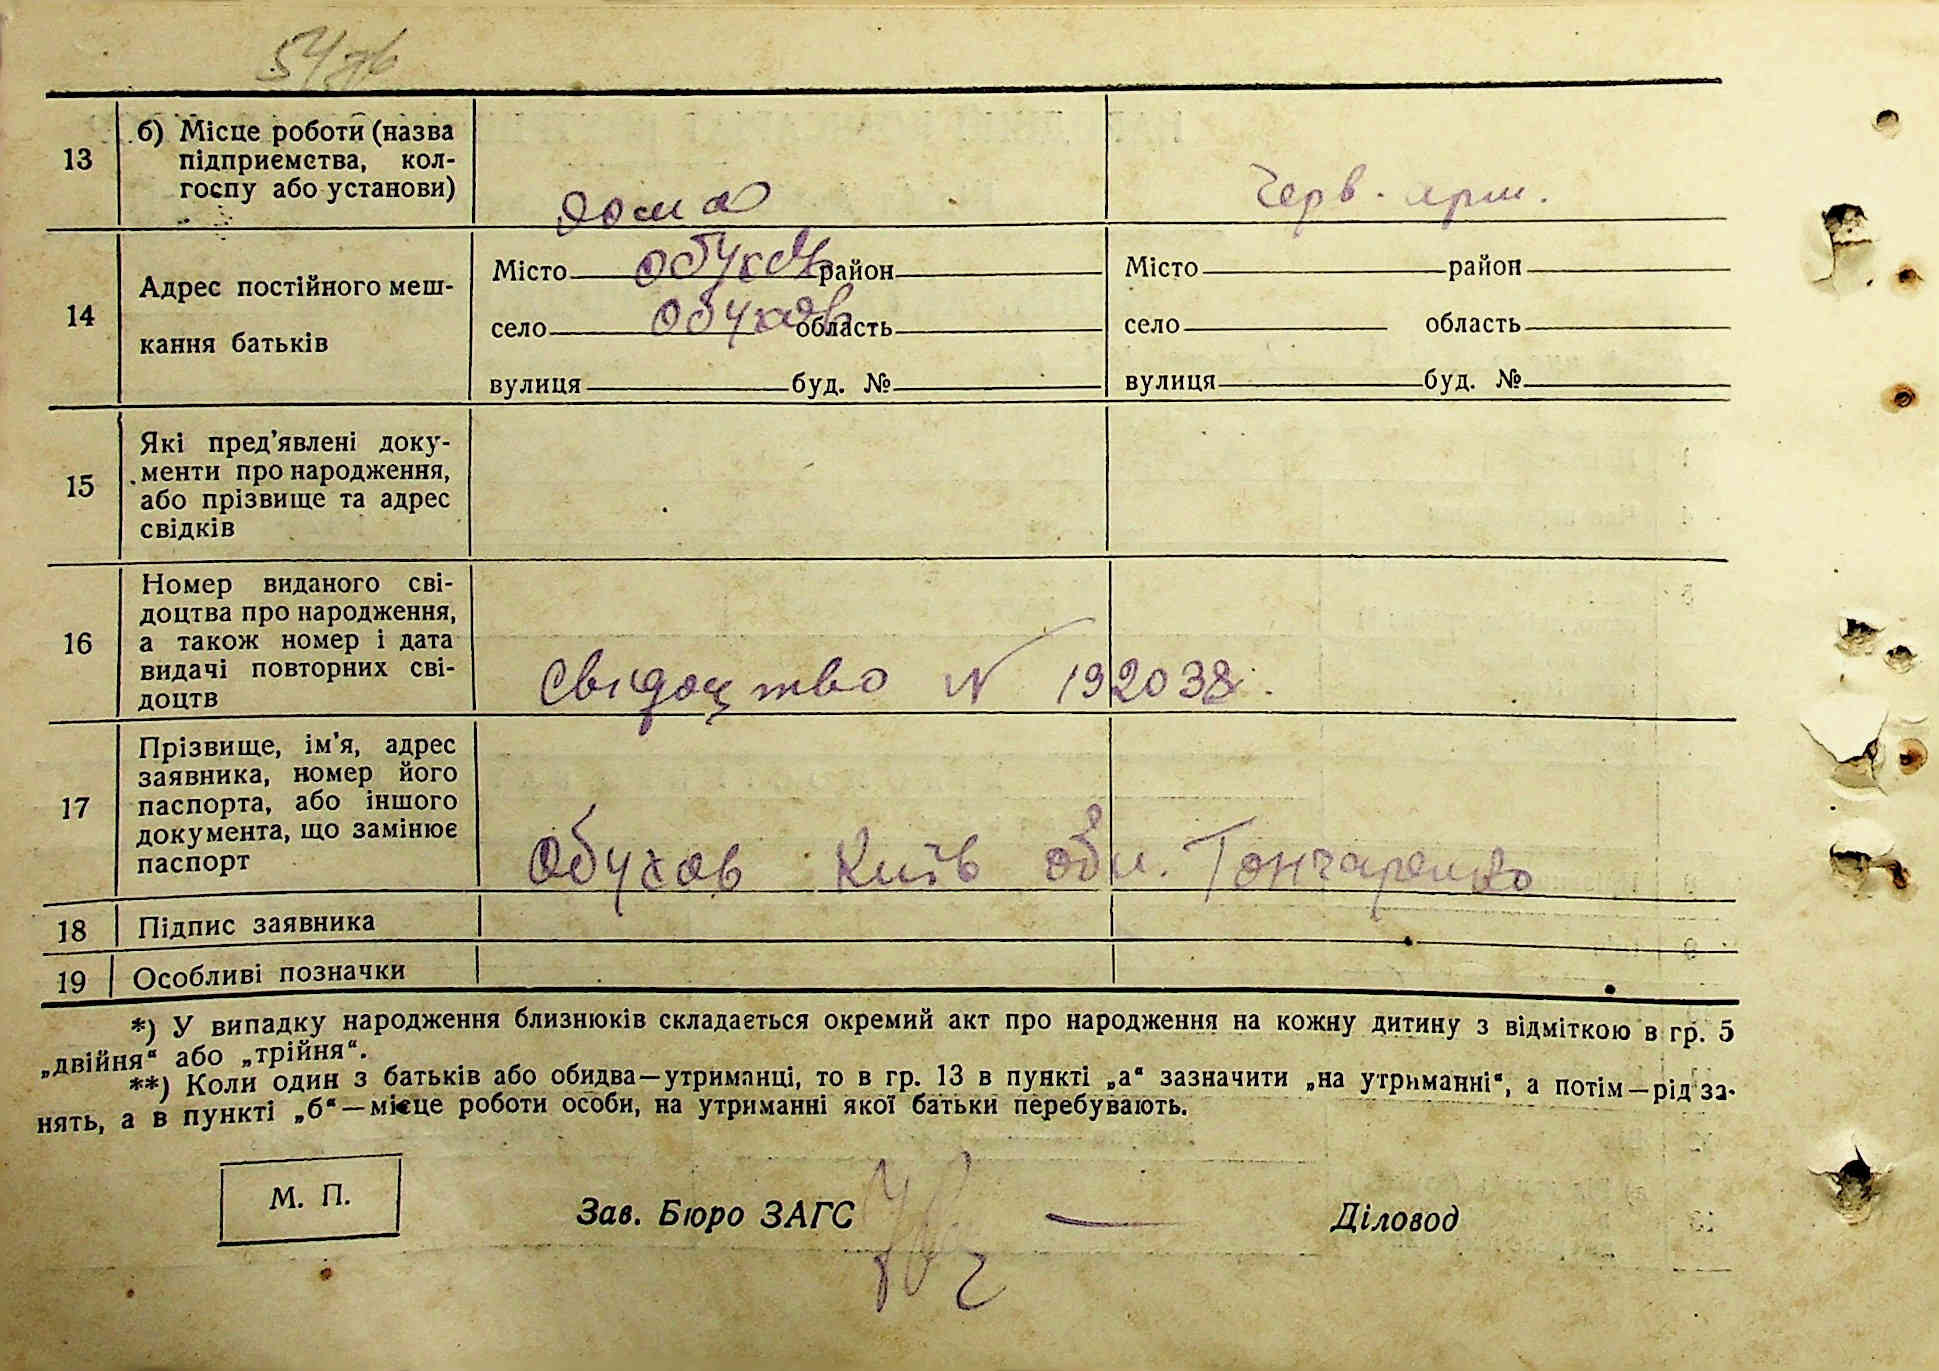 54
13
б) Місце роботи (назва
підприємства, кол-
госпу або установи)
дома
Черв. арм.
14
Адрес постійного меш-
кання батьків
Місто Обухов район
село Обухов область
вулиця буд. №
Місто район
село область
вулиця буд. №
15
Які пред'явлені доку-
менти про народження,
або прізвище та адрес
свідків
16
Номер виданого сві-
доцтва про народження,
а також номер і дата
видачі повторних сві-
доцтв
Свідоцтво N 192038.
17
Прізвище, ім'я, адрес
заявника, номер його
паспорта, або іншого
документа, що замінює
паспорт
Обухов Київ обл. Гончаренко
18 Підпис заявника
19 Особливі позначки
*) У випадку народження близнюків складається окремий акт про народження на кожну дитину з відміткою в гр. 5
„двійня“ або „трійня“.
**) Коли один з батьків або обидва—утриманці, то в гр. 13 в пункті „а“ зазначити „на утриманні“, а потім—рід за-
нять, а в пункті „б“—місце роботи особи, на утриманні якої батьки перебувають.
М. П.
Зав. Бюро ЗАГС
Діловод